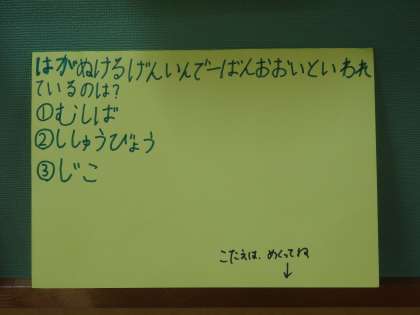 はがぬけるげんいんで一ばんおおいといわれ
ているのは?
①むしば
②ししゅうびょう
③じこ
こたえは、めくってね
↓